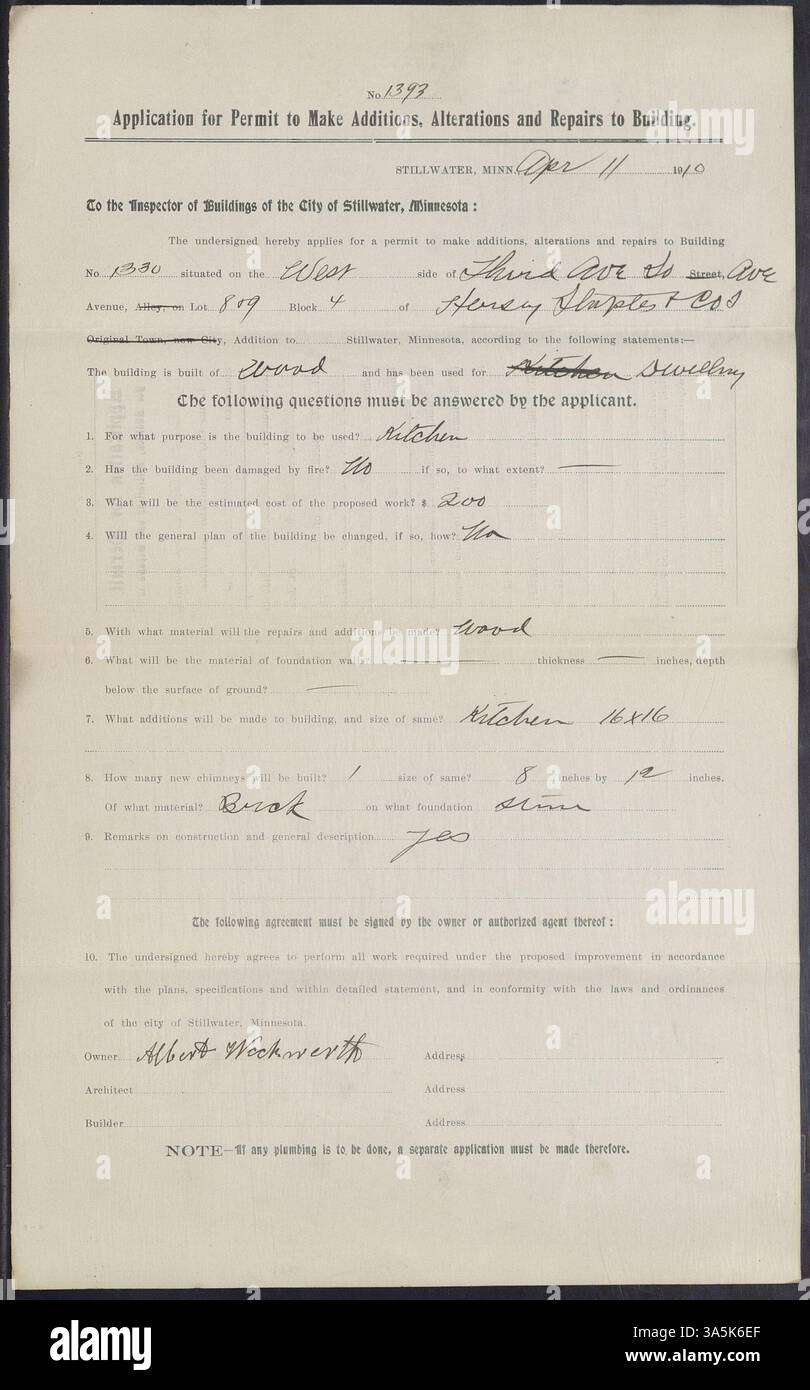 No 1393
Application for Permit to Make Additions, Alterations and Repairs to Building.
STILLWATER, MINN. Apr 11 1910
To the Inspector of Buildings of the City of Stillwater, Minnesota :
The undersigned hereby applies for a permit to make additions, alterations and repairs to Building
No 1330 situated on the West side of Third Ave So Street, Ave
Avenue, Alley, on Lot 8 & 9 Block 4 of Hersey Staples & Co's
Original Town, now City, Addition to Stillwater, Minnesota, according to the following statements:—
The building is built of Wood and has been used for Kitchen Dwelling
The following questions must be answered by the applicant.
1. For what purpose is the building to be used? Kitchen
2. Has the building been damaged by fire? No if so, to what extent? —
3. What will be the estimated cost of the proposed work? $ 200
4. Will the general plan of the building be changed, if so, how? No
5. With what material will the repairs and additions be made? Wood
6. What will be the material of foundation walls? — thickness — inches, depth
below the surface of ground? —
7. What additions will be made to building, and size of same? Kitchen 16x16
8. How many new chimneys will be built? 1 size of same? 8 inches by 12 inches.
Of what material? Brick on what foundation stone
9. Remarks on construction and general description yes
The following agreement must be signed by the owner or authorized agent thereof :
10. The undersigned hereby agrees to perform all work required under the proposed improvement in accordance
with the plans, specifications and within detailed statement, and in conformity with the laws and ordinances
of the city of Stillwater, Minnesota.
Owner Albert Wockwerth Address
Architect Address
Builder Address
NOTE—If any plumbing is to be done, a separate application must be made therefore.
alamy
alamy
alamy
alamy
Image ID: 3A5K6EF
www.alamy.com